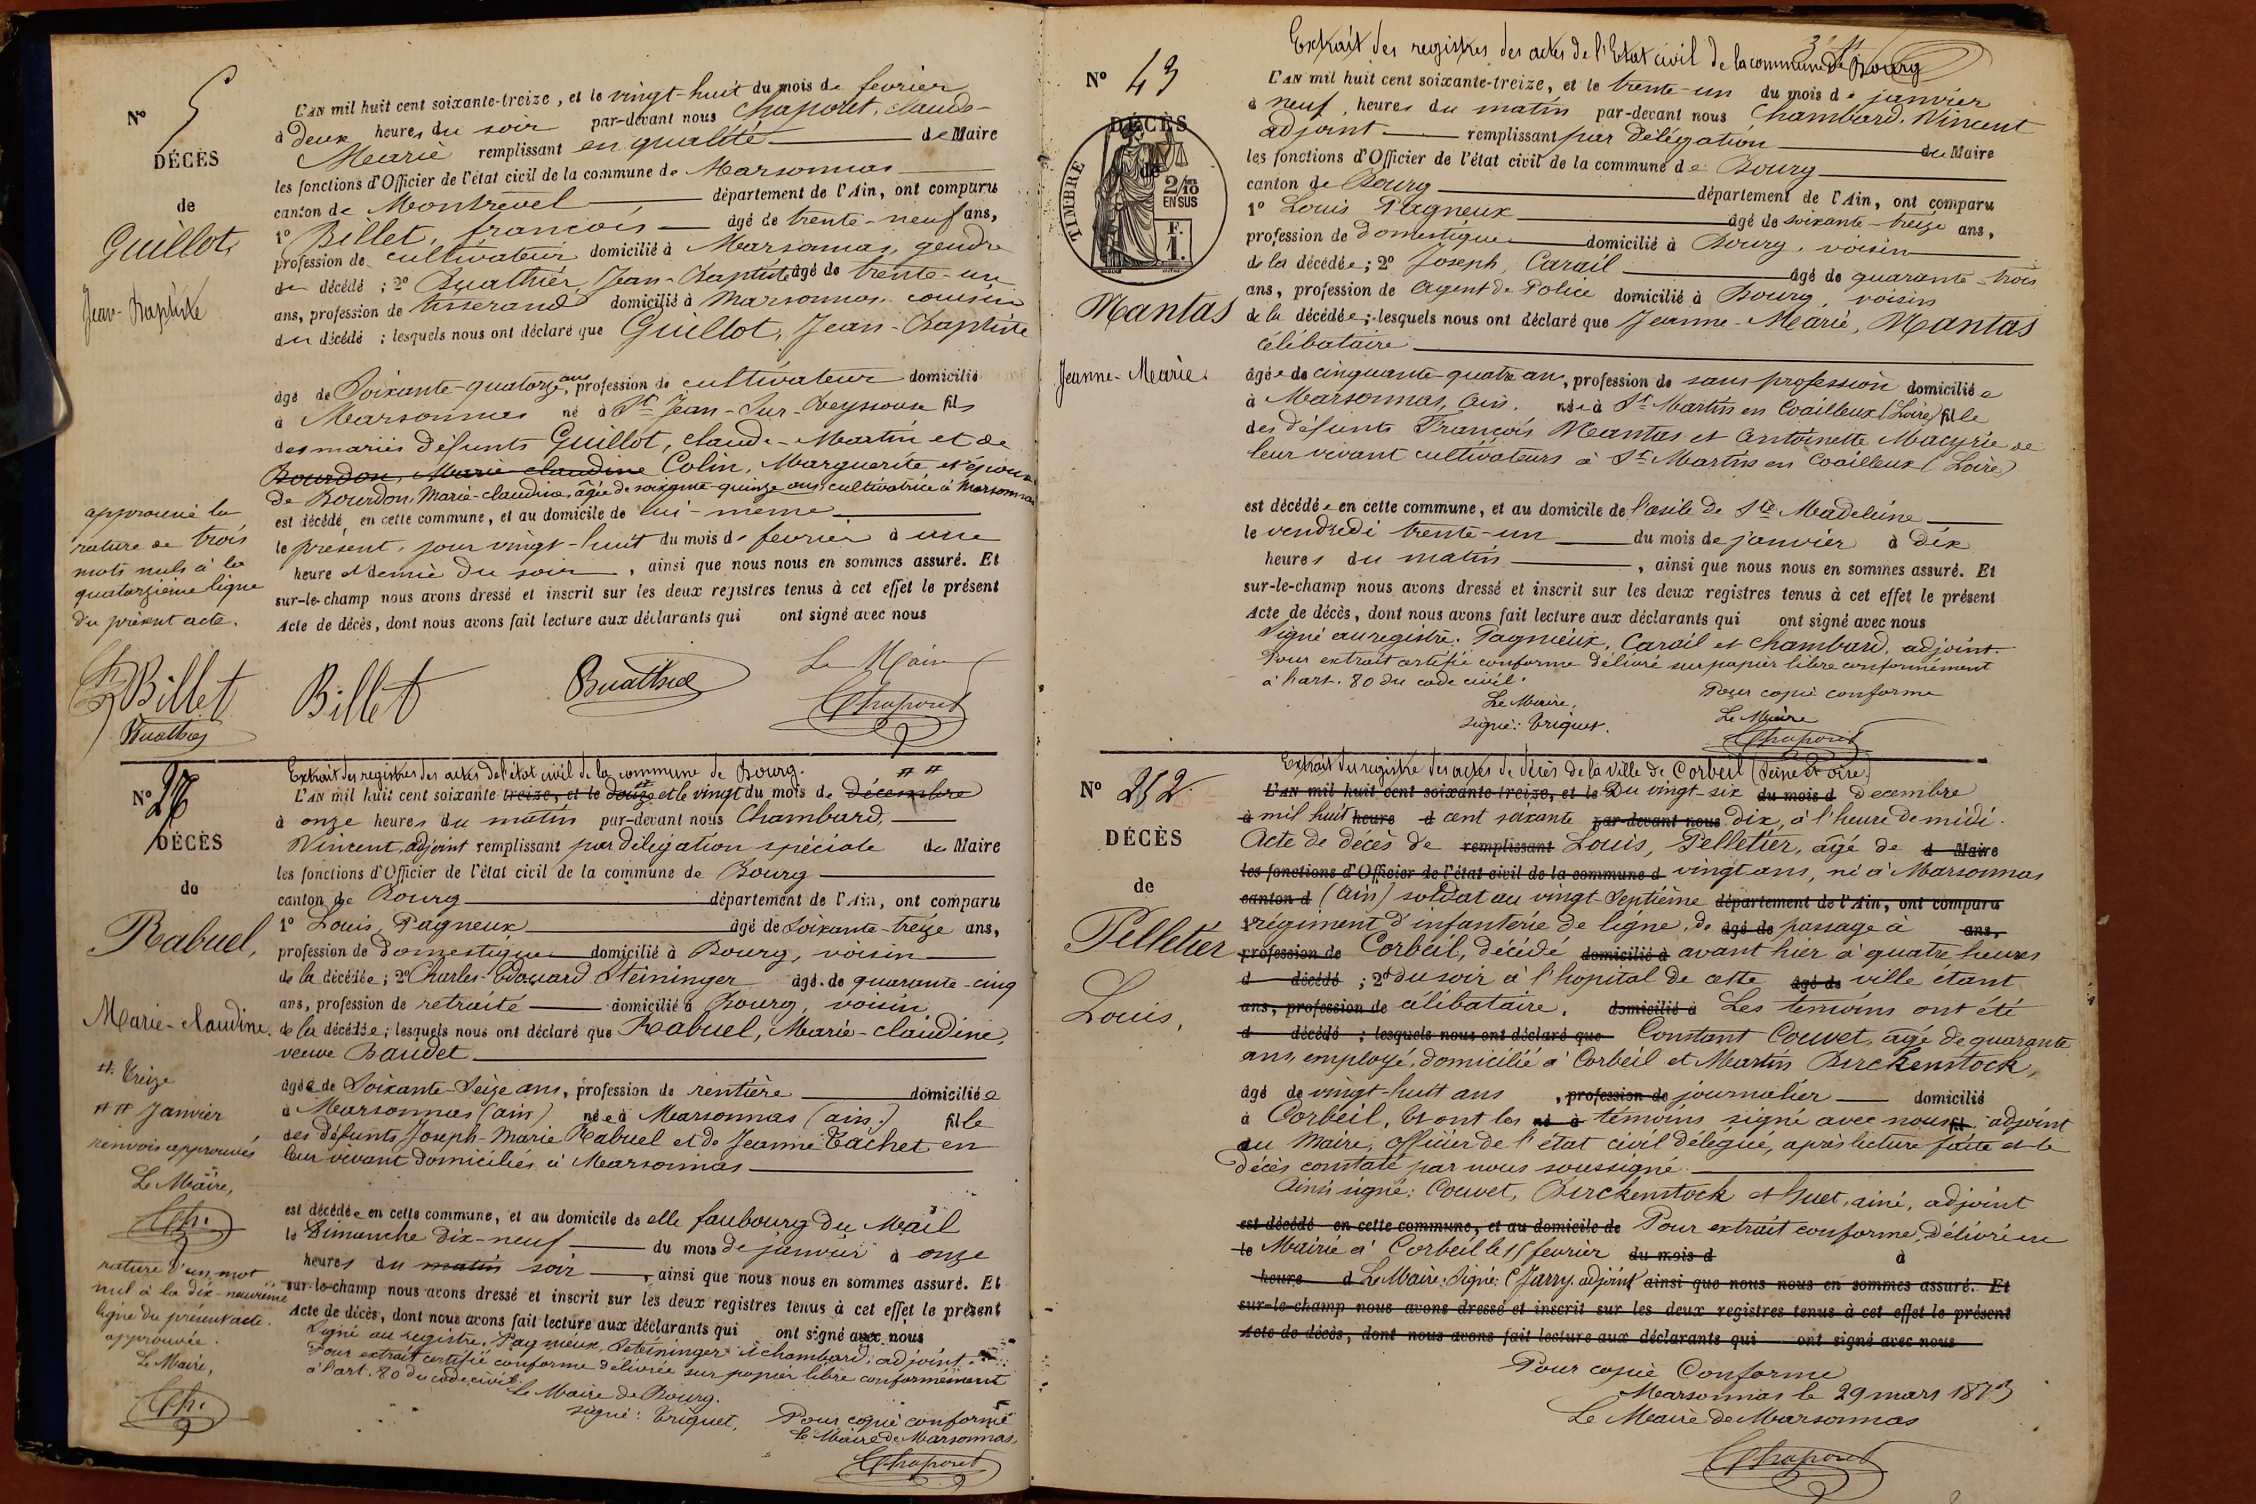 N° 5
DÉCÈS
de
Guillot,
Jean-Baptiste
L'AN mil huit cent soixante-treize, et le vingt-huit du mois de fevrier
à Deux heures du soir par-devant nous Chaponet, claude-
Marie remplissant en qualité de Maire
les fonctions d'Officier de l'état civil de la commune de Marsonnas
canton de Montrevel département de l'Ain, ont comparu
1° Billet, francois âgé de trente-neuf ans,
profession de cultivateur domicilié à Marsonnas, gendre
du décédé ; 2° Buathier, Jean-Baptiste âgé de trente-un
ans, profession de tisserand domicilié à Marsonnas cousin
du décédé ; lesquels nous ont déclaré que Guillot, Jean-Baptiste
âgé de Soixante-quatorze ans, profession de cultivateur domicilié
à Marsonnas né à St Jean-Sur-Reyssouze fils
des mariés défunts Guillot, claude-Martin et de
Bourdon, Marie claudine Colin, Marguerite et époux
de Bourdon Marie-claudine, âgée de soixante-quinze ans cultivatrice à Marsonnas
est décédé, en cette commune, et au domicile de lui-même
le présent, jour vingt-huit du mois de fevrier à une
heure et demie du soir, ainsi que nous nous en sommes assuré. Et
sur-le-champ nous avons dressé et inscrit sur les deux registres tenus à cet effet le présent
Acte de décès, dont nous avons fait lecture aux déclarants qui ont signé avec nous
approuvé la
rature de trois
mots nuls à la
quatorzième ligne
du présent acte.
Billet
Buathier
Billet
Buathier
Le Maire
Chaponet
N° 27
DÉCÈS
de
Rabuel,
Marie-claudine.
# Treize
## Janvier
renvois approuvés
Le Maire,
Ch.
rature d'un mot
nul à la dix-neuvième
ligne du présent acte.
approuvée.
Le Maire,
Ch.
Extrait des registres des actes de l'état civil de la commune de Bourg.
L'AN mil huit cent soixante treize, et le douze # et le vingt du mois de décembre ##
à onze heures du matin par-devant nous Chambard,
Vincent, adjoint remplissant par délégation spéciale du Maire
les fonctions d'Officier de l'état civil de la commune de Bourg
canton de Bourg département de l'Ain, ont comparu
1° Louis Pagneux âgé de Soixante-treize ans,
profession de domestique domicilié à Bourg, voisin
de la décédée ; 2° Charles-Edouard Steininger âgé de quarante-cinq
ans, profession de retraité domicilié à Bourg, voisin,
de la décédée ; lesquels nous ont déclaré que Rabuel, Marie-claudine,
veuve Baudet
âgée de Soixante-Seize ans, profession de rentière domiciliée
à Marsonnas (ain) née à Marsonnas (ain,) fille
des défunts Joseph-Marie Rabuel et de Jeanne Tachet en
leur vivant domiciliés à Marsonnas
est décédée en cette commune, et au domicile de elle faubourg du Mail
le Dimanche dix-neuf du mois de janvier à onze
heures du matin soir, ainsi que nous nous en sommes assuré. Et
sur-le-champ nous avons dressé et inscrit sur les deux registres tenus à cet effet le présent
Acte de décès, dont nous avons fait lecture aux déclarants qui ont signé avec nous
Signé au registre. Pagneux, Steininger & chambard, adjoint.
Pour extrait certifié conforme délivrée sur papier libre conformément
à l'art. 80 du code civil.
Le Maire de Bourg.
signé : Triquet,
Pour copie conforme
Le Maire de Marsonnas,
Chaponet
N° 43
DÉCÈS
de
TIMBRE
2/10
EN SUS
F.
1.
Mantas
Jeanne-Marie.
Extrait des registres des actes de l'Etat civil de la commune de Bourg
L'AN mil huit cent soixante-treize, et le trente-un du mois de janvier
à neuf heures du matin par-devant nous Chambard, Vincent
adjoint remplissant par délégation du Maire
les fonctions d'Officier de l'état civil de la commune de Bourg
canton de Bourg département de l'Ain, ont comparu
1° Louis Pagneux âgé de soixante-treize ans,
profession de domestique domicilié à Bourg, voisin
de la décédée ; 2° Joseph, Carail âgé de quarante-trois
ans, profession de Agent de Police domicilié à Bourg, voisin
de la décédée ; lesquels nous ont déclaré que Jeanne-Marie, Mantas
célibataire
âgée de cinquante-quatre ans, profession de sans profession domiciliée
à Marsonnas, Ain. née à St Martin en Coailleux (Loire) fille
des défunts François Mantas et Antoinette Macyrie de
leur vivant cultivateurs à St Martin en Coailleux (Loire)
est décédée en cette commune, et au domicile de l'asile de Ste Madeleine
le vendredi trente-un du mois de janvier à dix
heures du matin, ainsi que nous nous en sommes assuré. Et
sur-le-champ nous avons dressé et inscrit sur les deux registres tenus à cet effet le présent
Acte de décès, dont nous avons fait lecture aux déclarants qui ont signé avec nous
Signé au registre. Pagneux, Carail et chambard, adjoint.
Pour extrait certifié conforme délivré sur papier libre conformément
à l'art. 80 du code civil.
Le Maire,
signé : Triquet.
Pour copie conforme
Le Maire
Chaponet
N° 252
DÉCÈS
de
Pelletier
Louis,
Extrait du registre des actes de décès de la ville de Corbeil (Seine et oise)
L'AN mil huit cent soixante-treize, et le Du vingt-six du mois d Decembre
à mil huit heure d cent soixante par-devant nous Dix, à l'heure de midi.
Acte de décès de remplissant Louis, Pelletier, âgé de d Maire
les fonctions d'Officier de l'état civil de la commune d vingt ans, né à Marsonnas
canton d (Ain) soldat au vingt-Septième département de l'Ain, ont comparu
1° régiment d'infanterie de ligne, de âgé de passage à ans,
profession de Corbeil, décédé domicilié à avant hier à quatre heures
d décédé ; 2° du soir à l'hopital de cette âgé de ville étant
ans, profession de célibataire. domicilié à Les temoins ont été
d décédé ; lesquels nous ont déclaré que Constant Couvet, agé de quarante
ans, employé, domicilié à Corbeil et Martin Birckenstock,
âgé de vingt-huit ans, profession de journalier domicilié
à Corbeil, Et ont les né à témoins signé avec nous fil adjoint
au Maire, officier de l'état civil délégué, après lecture faite et le
décès constaté par nous soussigné
Ainsi signé : Couvet, Birckenstock et huet, ainé, adjoint
est décédé en cette commune, et au domicile de Pour extrait conforme, délivré en
le Mairie à Corbeil le 15 fevrier du mois d à
heure d Le Maire. Signé : C Jarry. adjoint ainsi que nous nous en sommes assuré. Et
sur-le-champ nous avons dressé et inscrit sur les deux registres tenus à cet effet le présent
Acte de décès, dont nous avons fait lecture aux déclarants qui ont signé avec nous
Pour copie Conforme
Marsonnas le 29 mars 1873
Le Maire de Marsonnas
Chaponet